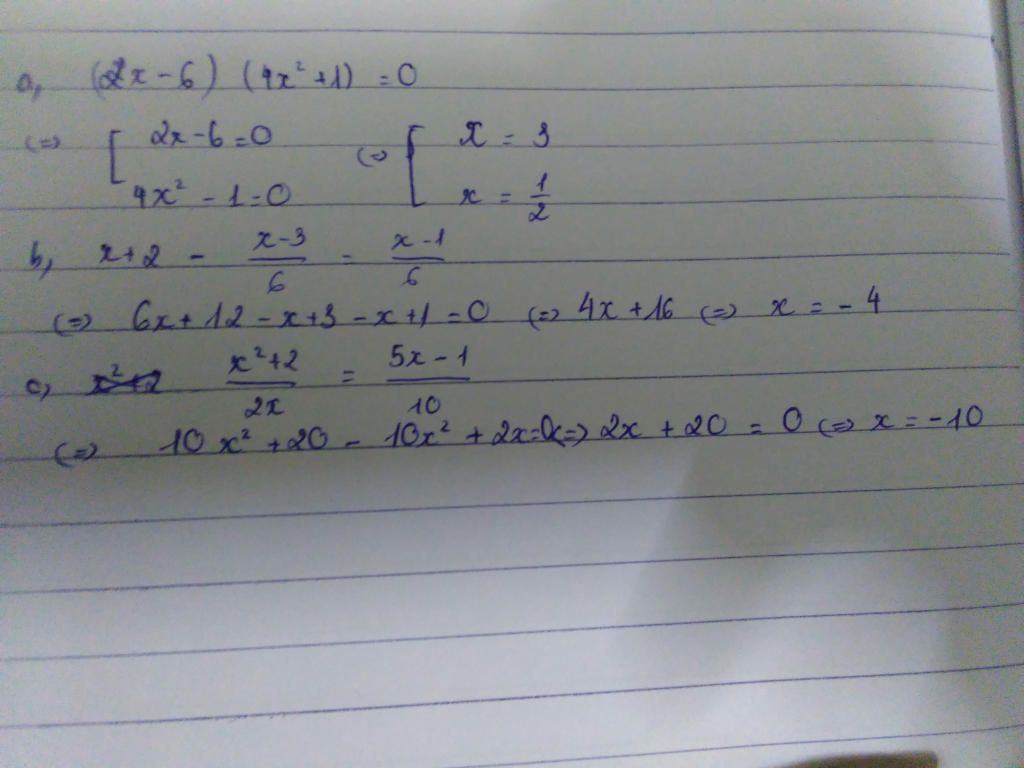 a, (2x-6) (4x²+1) = 0
(=> [ 2x-6=0 4x² - 1=0 (=> [ x = 3 x = 1/2
b, x+2 - (x-3)/6 = (x-1)/6
(=> 6x+12-x+3-x+1=0 (=> 4x+16 (=> x = -4
c, x²+2 (x²+2)/2x = (5x-1)/10
(=> 10x²+20 - 10x² + 2x=0(=> 2x+20 = 0 (=> x = -10